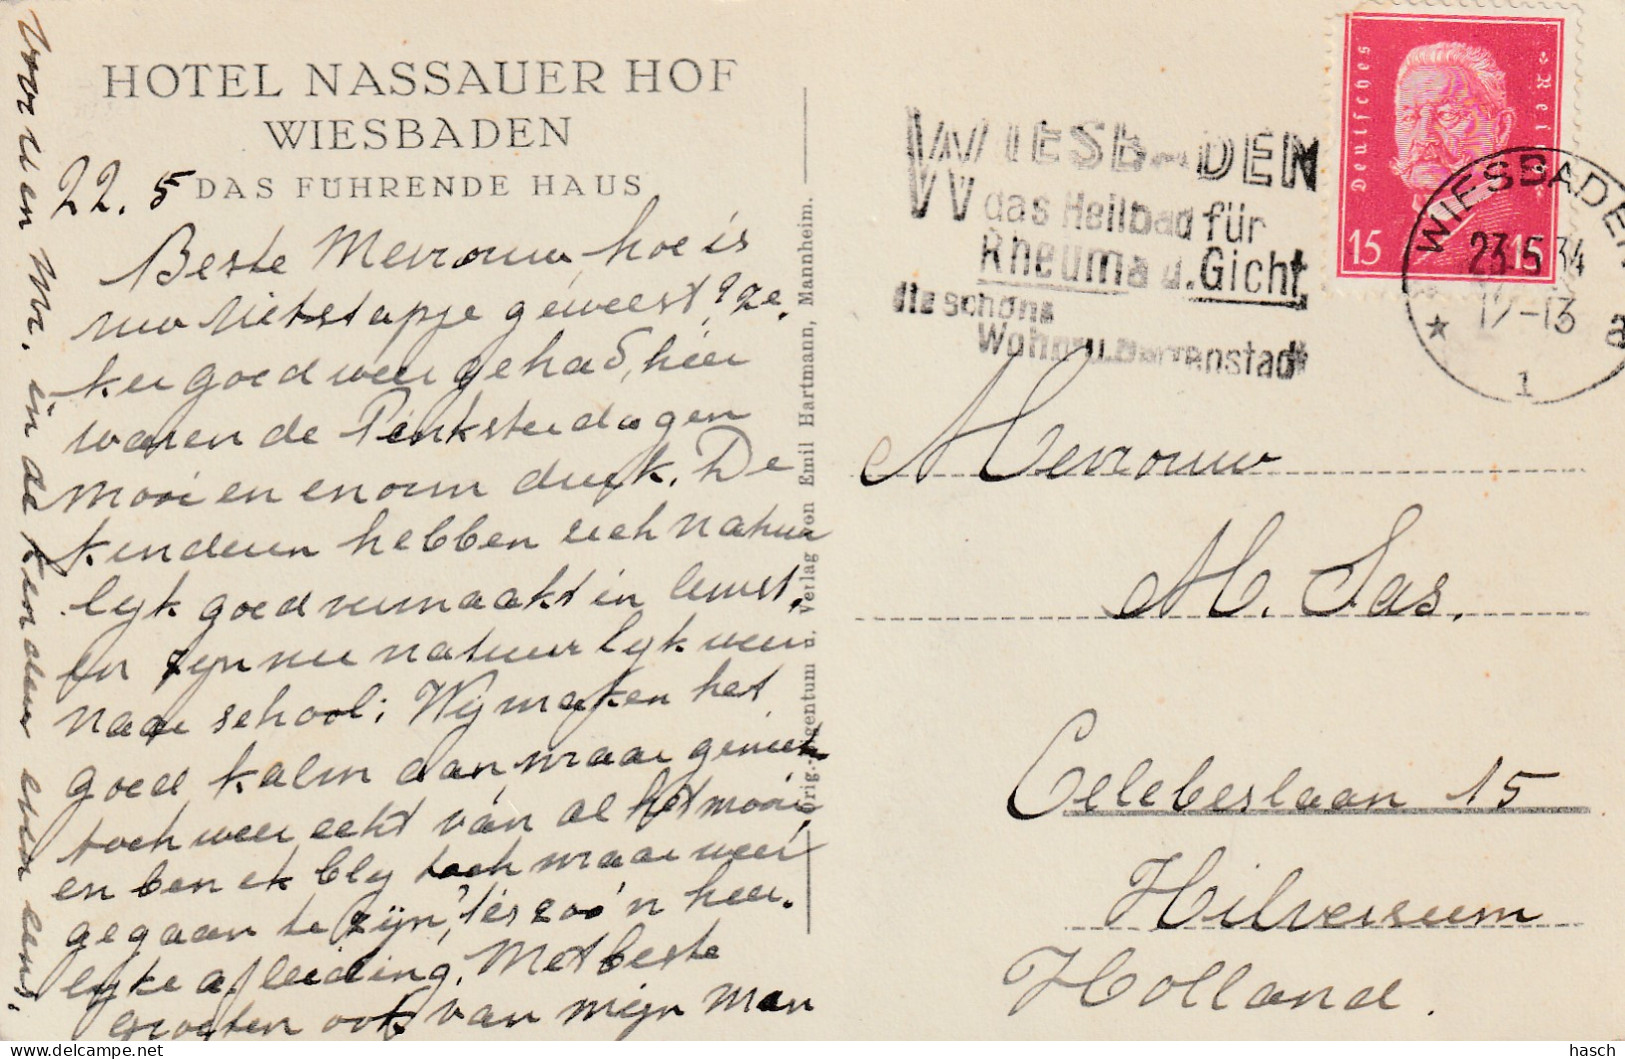 HOTEL NASSAUER HOF
WIESBADEN
DAS FÜHRENDE HAUS
22.5
Beste Mevrouw, hoe is
uw uitstapje geweest? ze.
ker goed weer gehad, hier
waren de Pinksterdagen
mooi en enorm druk. De
kinderen hebben zich natuur
lijk goed vermaakt in
en zijn nu natuurlijk weer
naar school; Wij maken het
goed kalm aan, maar geniet
toch weer echt van al het mooie
en ben ik blij toch maar weer
gegaan te zijn, 't is zoo'n heer.
lijke afleiding. Met beste
groeten ook van mijn man
voor u en Mr. in de kinderen even eens.
Orig.-Eigentum u. Verlag von Emil Hartmann, Mannheim.
WIESBADEN
das Heilbad für
Rheuma u. Gicht
die schöne
Wohn u. Gartenstadt
Deutsches Reich
15 15
WIESBADEN
23.5.34
12-13
* 1 a
Mevrouw
M. Sas.
Celebeslaan 15
Hilversum
Holland.
hasch